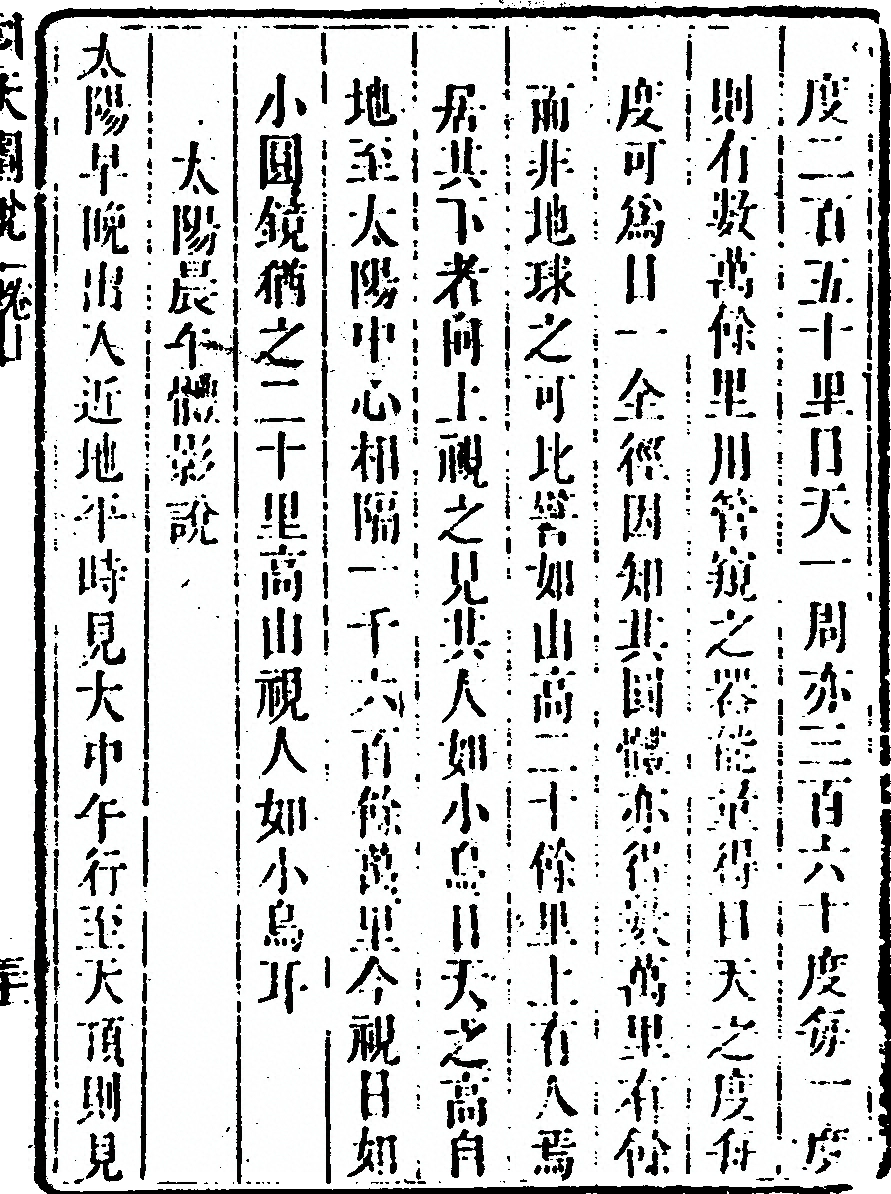 度二百五十里日天一周亦三百六十度每一度
則有數萬餘里用管窺之器能量得日天之度每
度可爲日一全徑因知其圓體亦得數萬里有餘
而非地球之可比譬如山高二十餘里上有人焉
居其下者向上視之見其人如小鳥日天之高自
地至太陽中心相隔一千六百餘萬里今視日如
小圓鏡猶之二十里高山視人如小鳥耳
太陽晨午體影說
太陽早晚出入近地平時見大中午行至天頂則見